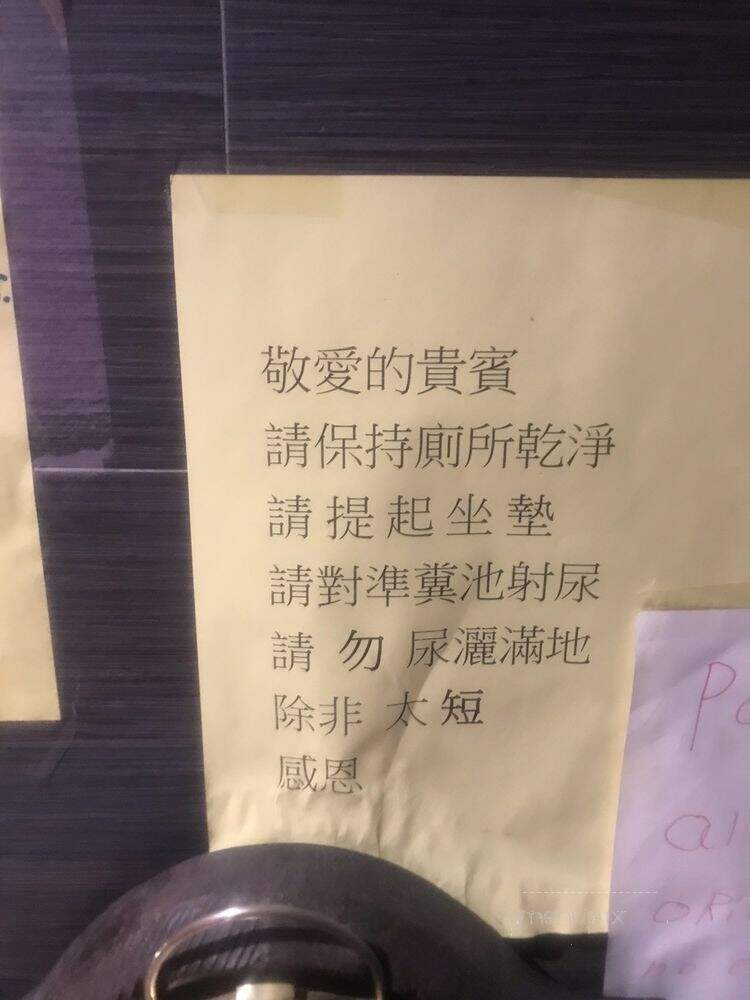 敬愛的貴賓
請保持廁所乾淨
請提起坐墊
請對準糞池射尿
請 勿 尿灑滿地
除非 太 短
感恩